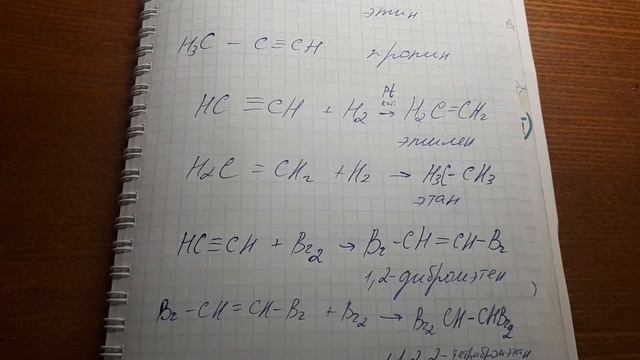 этин
H₃C – C≡CH пропин
HC≡CH + H₂ →(Pt кат.) H₂C=CH₂
этилен
H₂C=CH₂ + H₂ → H₃C-CH₃
этан
HC≡CH + Br₂ → Br-CH=CH-Br
1,2-диброжэтен
Br-CH=CH-Br + Br₂ → Br₂CH-CHBr₂